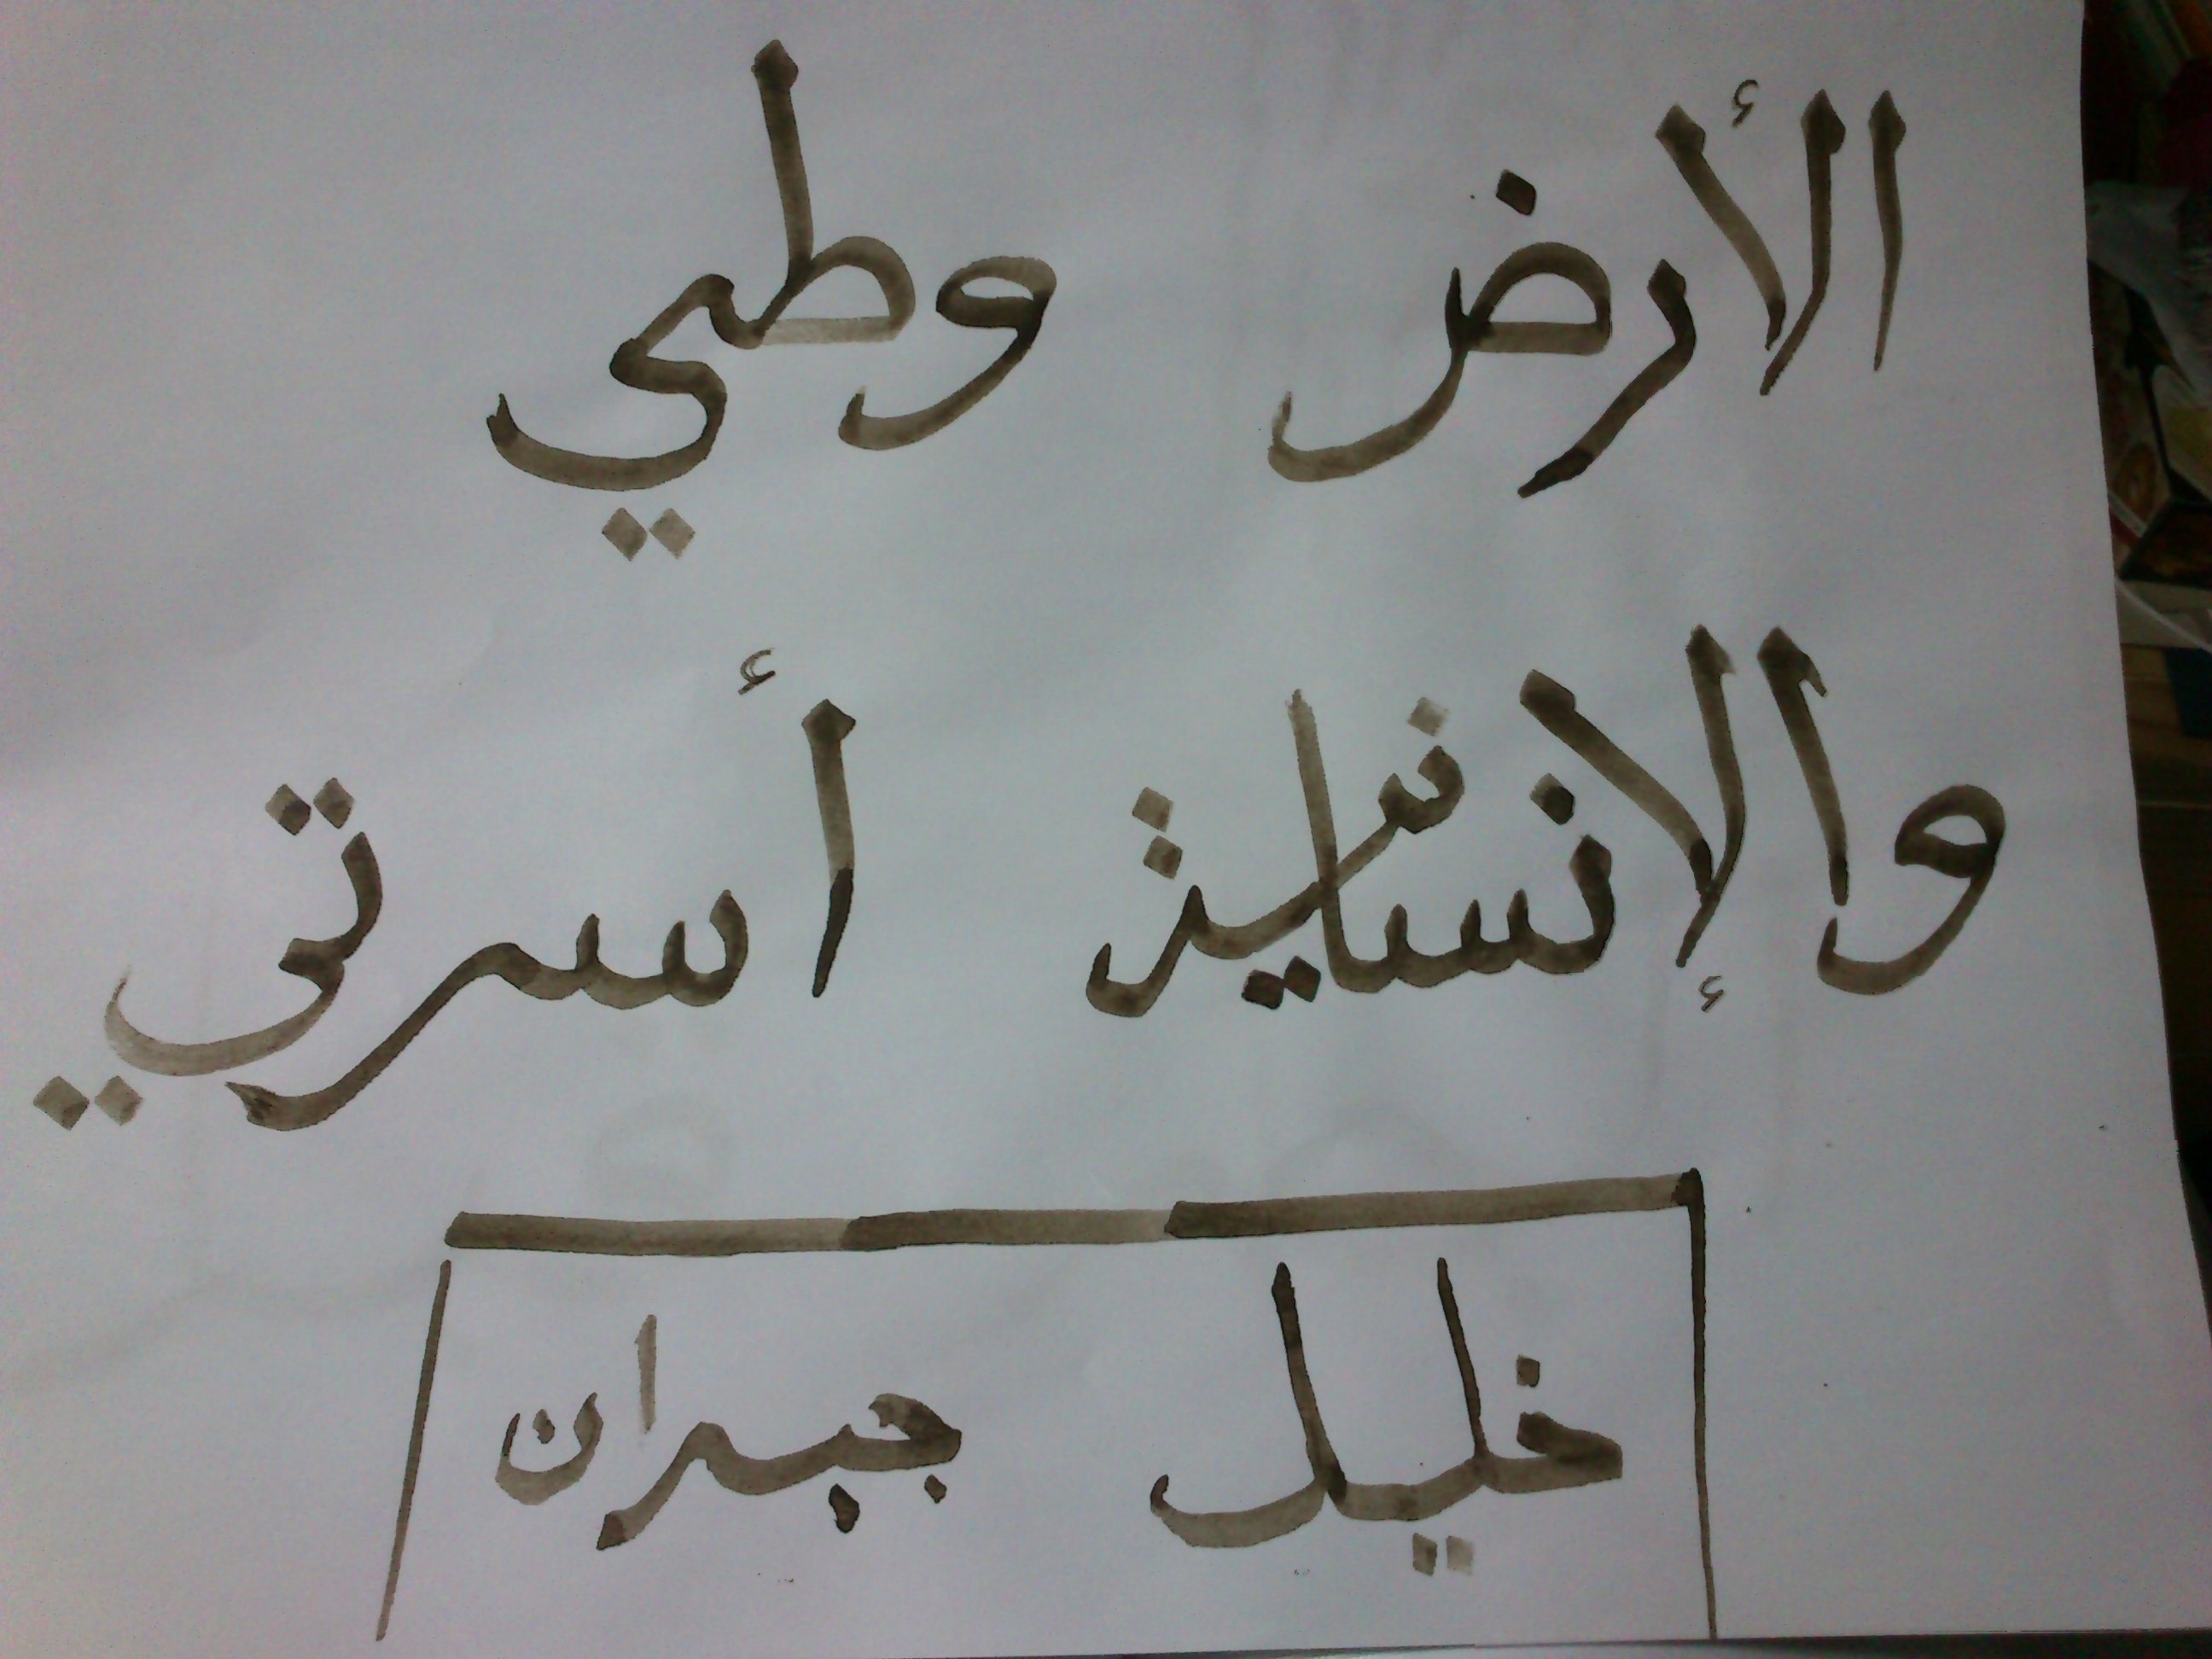 الأرض وطني
والإنسانية أسرتي
خليل جبران